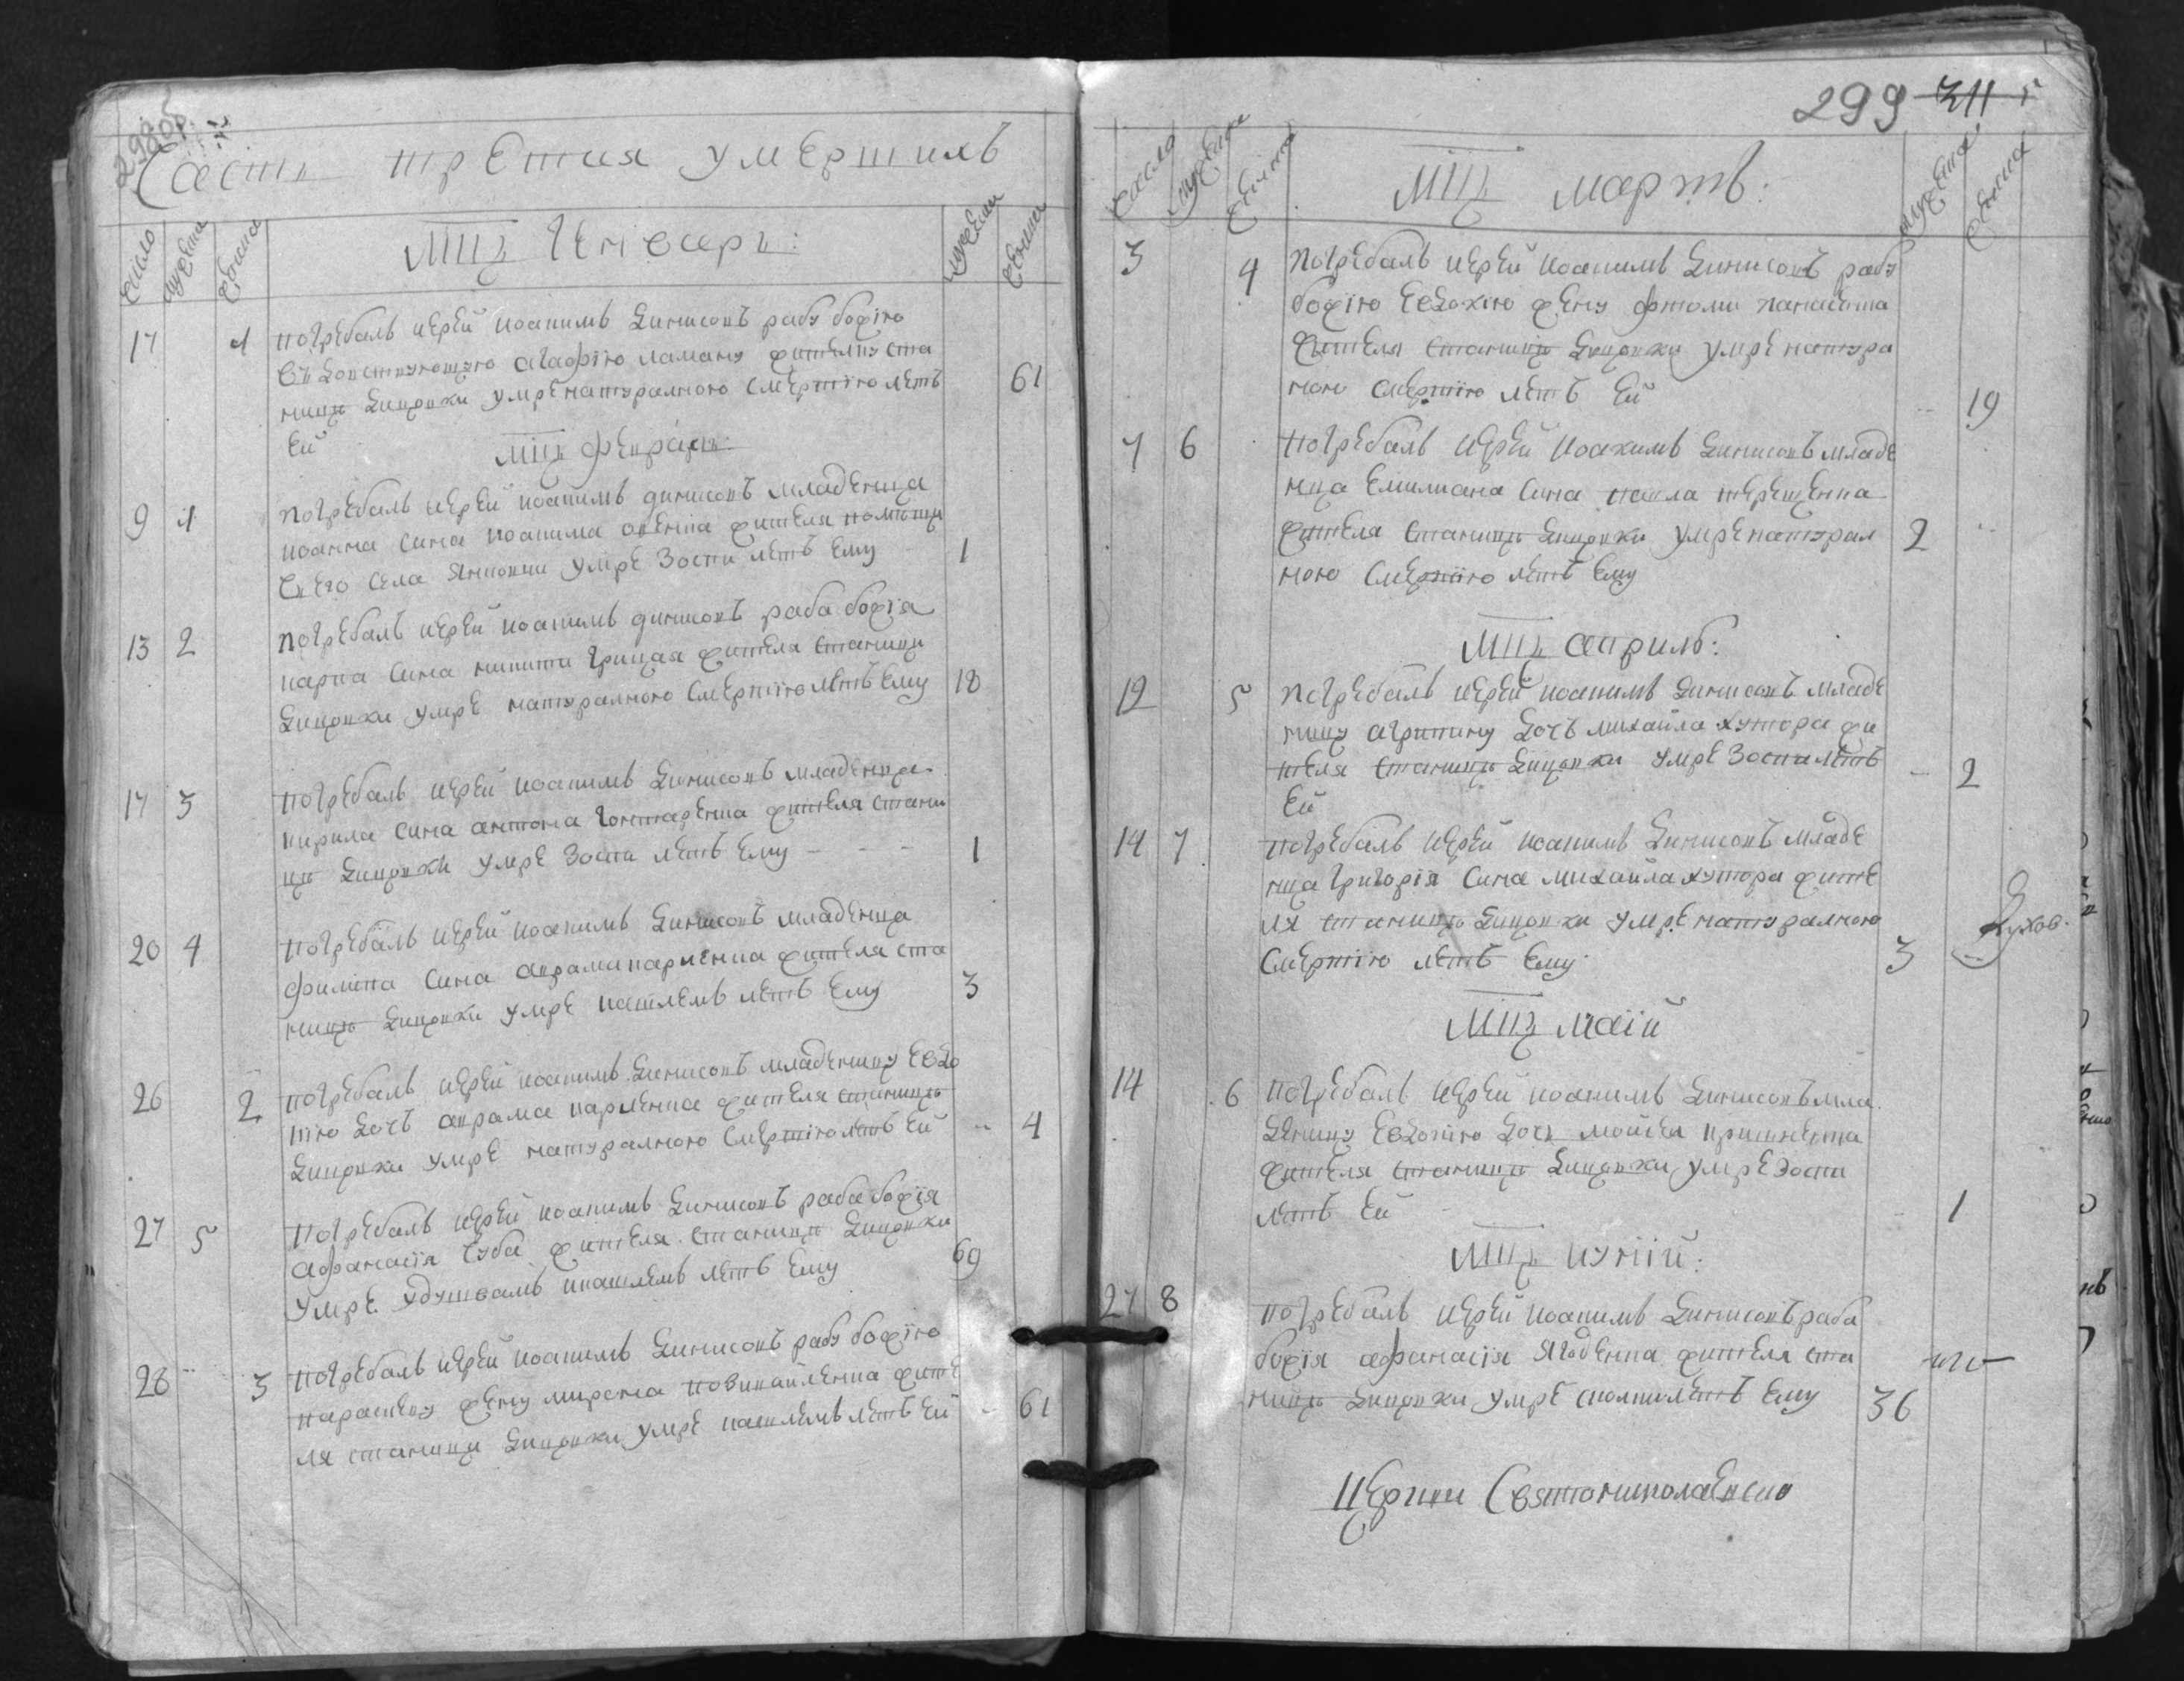 298 об
Часть третия умершихъ
число
мужеска
женска
Мцъ Генваръ:
мужеска
женска
17 1 погребалъ иерей иоакимъ Динисовъ рабу божію
вдовствующую агафію жителку ста
ницы умре натуралною смертію летъ 61
ей
Мцъ февраль:
9 1 погребалъ иерей иоакимъ динисовъ младенца
иоанна сина иоакима жителя
сего села умре з оспи летъ ему 1
13 2 погребалъ иерей иоакимъ динисовъ раба божія
карпа сина никити грицая жителя станици
умре натуралною смертію летъ ему 18
17 3 погребалъ иерей иоакимъ Динисовъ младенца
кирила сина антона гонтаренка жителя стани
ци умре з оспи летъ ему - - - 1
20 4 погребалъ иерей иоакимъ Динисовъ младенца
филипа сина аврама карпенка жителя ста
ници умре кашлемъ летъ ему 3
26 2 погребалъ иерей иоакимъ Динисовъ младеницу евдо
кію дочъ аврама карпенка жителя станици
умре натуралною смертію летъ ей 4
27 5 погребалъ иерей иоакимъ Динисовъ раба божія
афанасія чуба жителя станици
умре кашлемъ летъ ему 69
28 3 погребалъ иерей иоакимъ Динисовъ рабу божію
параскеву жену мирона жите
ля станици умре кашлемъ летъ ей 61
299 311
число
мужеска
женска
Мцъ мартъ:
мужеска
женска
3 4 Погребалъ иерей иоакимъ Динисовъ рабу
божію евдокію жену фтоми панасенка
жителя станици умре натура
ною смертію летъ ей 19
7 6 погребалъ иерей иоакимъ Динисовъ младе
нца емилиана сина павла терещенка
жителя станици умре натурал
ною смертію летъ ему 2
Мцъ априль:
12 5 погребалъ иерей иоакимъ Динисовъ младе
ницу агрипину дочъ михайла хутора жи
теля станици умре з оспи летъ 2
ей
14 7 погребалъ иерей иоакимъ Динисовъ младе
нца григорія сина михайла хутора жите
ля станици умре натуралною
смертію летъ ему 3
Духов.
Мцъ маій
14 6 погребалъ иерей иоакимъ Динисовъ мла
деницу евдокію дочъ мойсея
жителя станици умре з оспи
летъ ей 1
Мцъ иуній:
27 8 погребалъ иерей иоакимъ Динисовъ раба
божія афанасія ягоденка жителя ста
ници умре летъ ему 36
Церкви Святониколаевско